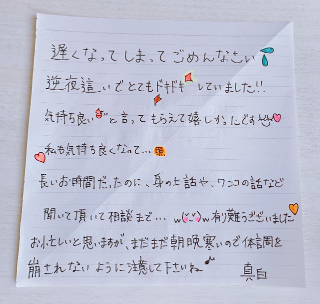 遅くなってしまってごめんなさい
逆夜這いでとてもドキドキしていました!!
気持ち良いと言ってもらえて嬉しかったです
私も気持ち良くなって…
長いお時間だったのに、身の上話や、ワンコの話など
聞いて頂いて相談まで… 有難うございました
お忙しいと思いますが、まだまだ朝晩寒いので体調を
崩されないように注意して下さいね♪ 真白